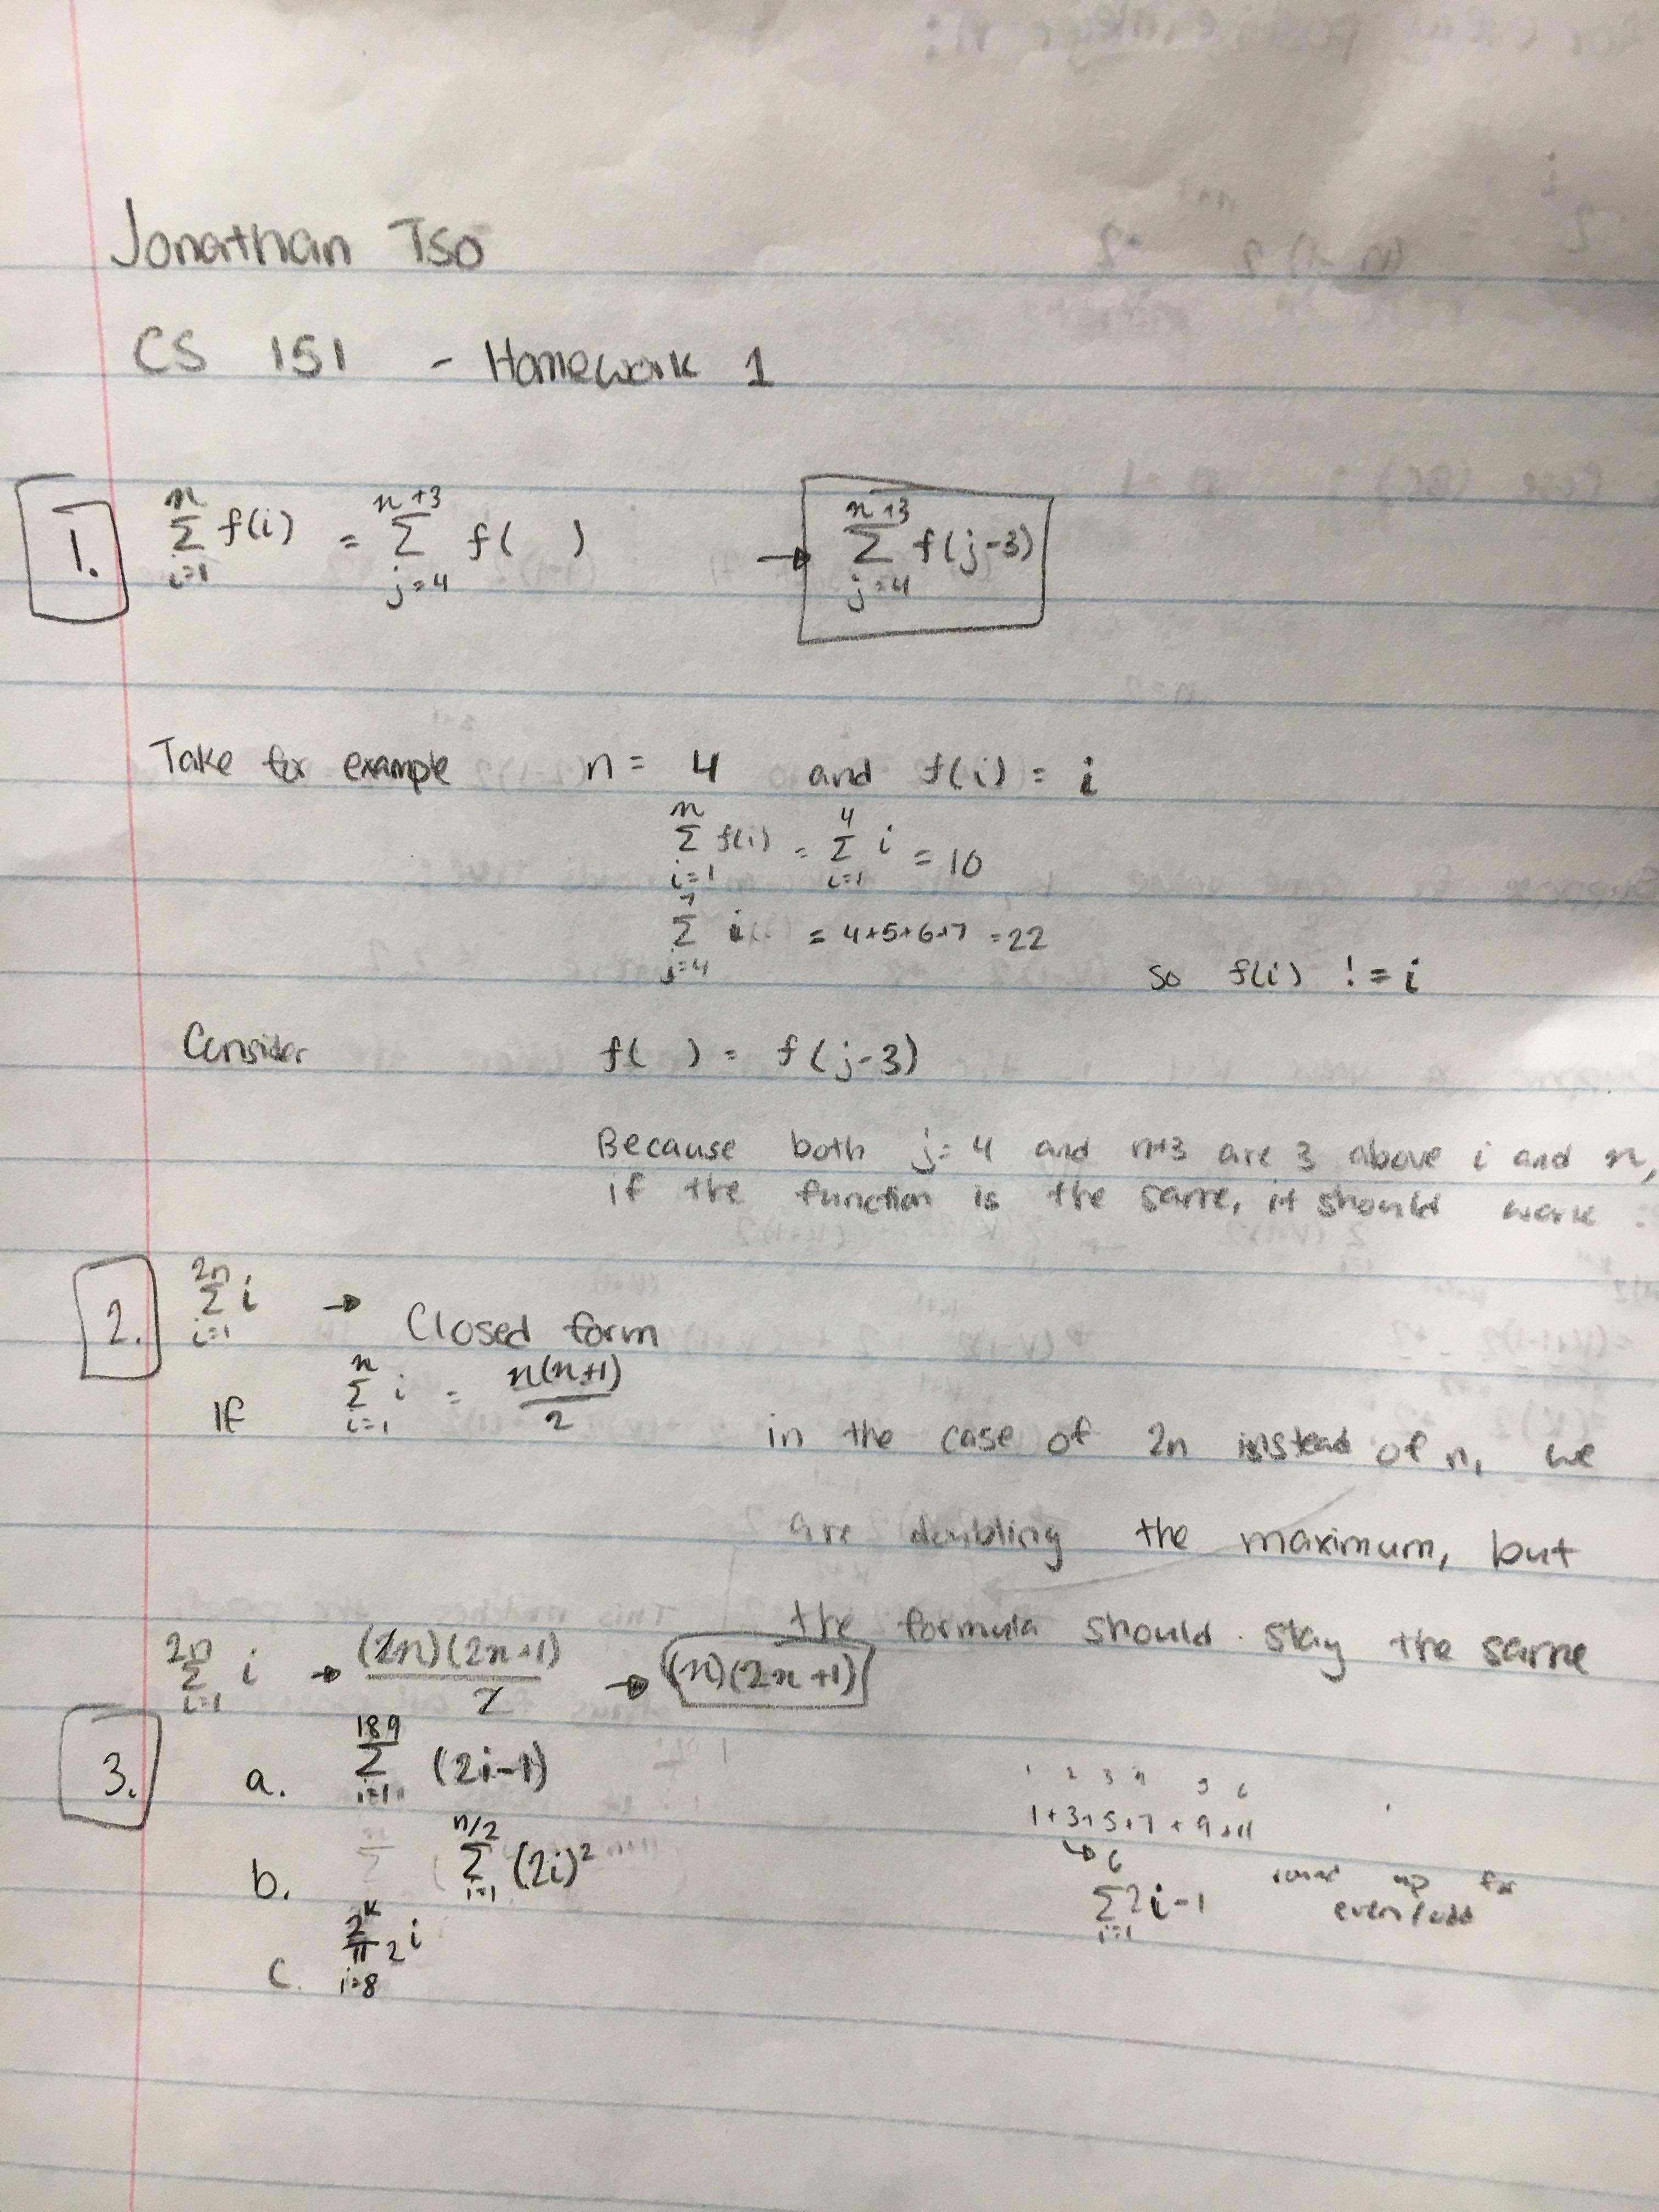 Jonathan Tso
CS 151 - Homework 1
1. n Σ i=1 f(i) = n+3 Σ j=4 f( ) → n+3 Σ j=4 f(j-3)
Take for example n = 4 and f(i) = i
n Σ i=1 f(i) = 4 Σ i=1 i = 10
7 Σ j=4 i = 4+5+6+7 =22
so f(i) != i
Consider f( ) = f(j-3)
Because both j=4 and n+3 are 3 above i and n,
if the function is the same, it should work
2. 2n Σ i=1 i → Closed form
If n Σ i=1 i = n(n+1)/2 in the case of 2n instead of n, we
are doubling the maximum, but
the formula should stay the same
2n Σ i=1 i → (2n)(2n+1)/2 → (n)(2n+1)
3. a. 189 Σ i=1 (2i-1)
1 2 3 4 5 6
1+3+5+7+9+11
b. n/2 Σ i=1 (2i)²
↳ 6 Σ i=1 2i-1 round up for
even/odd
c. 2^k π i=8 2i